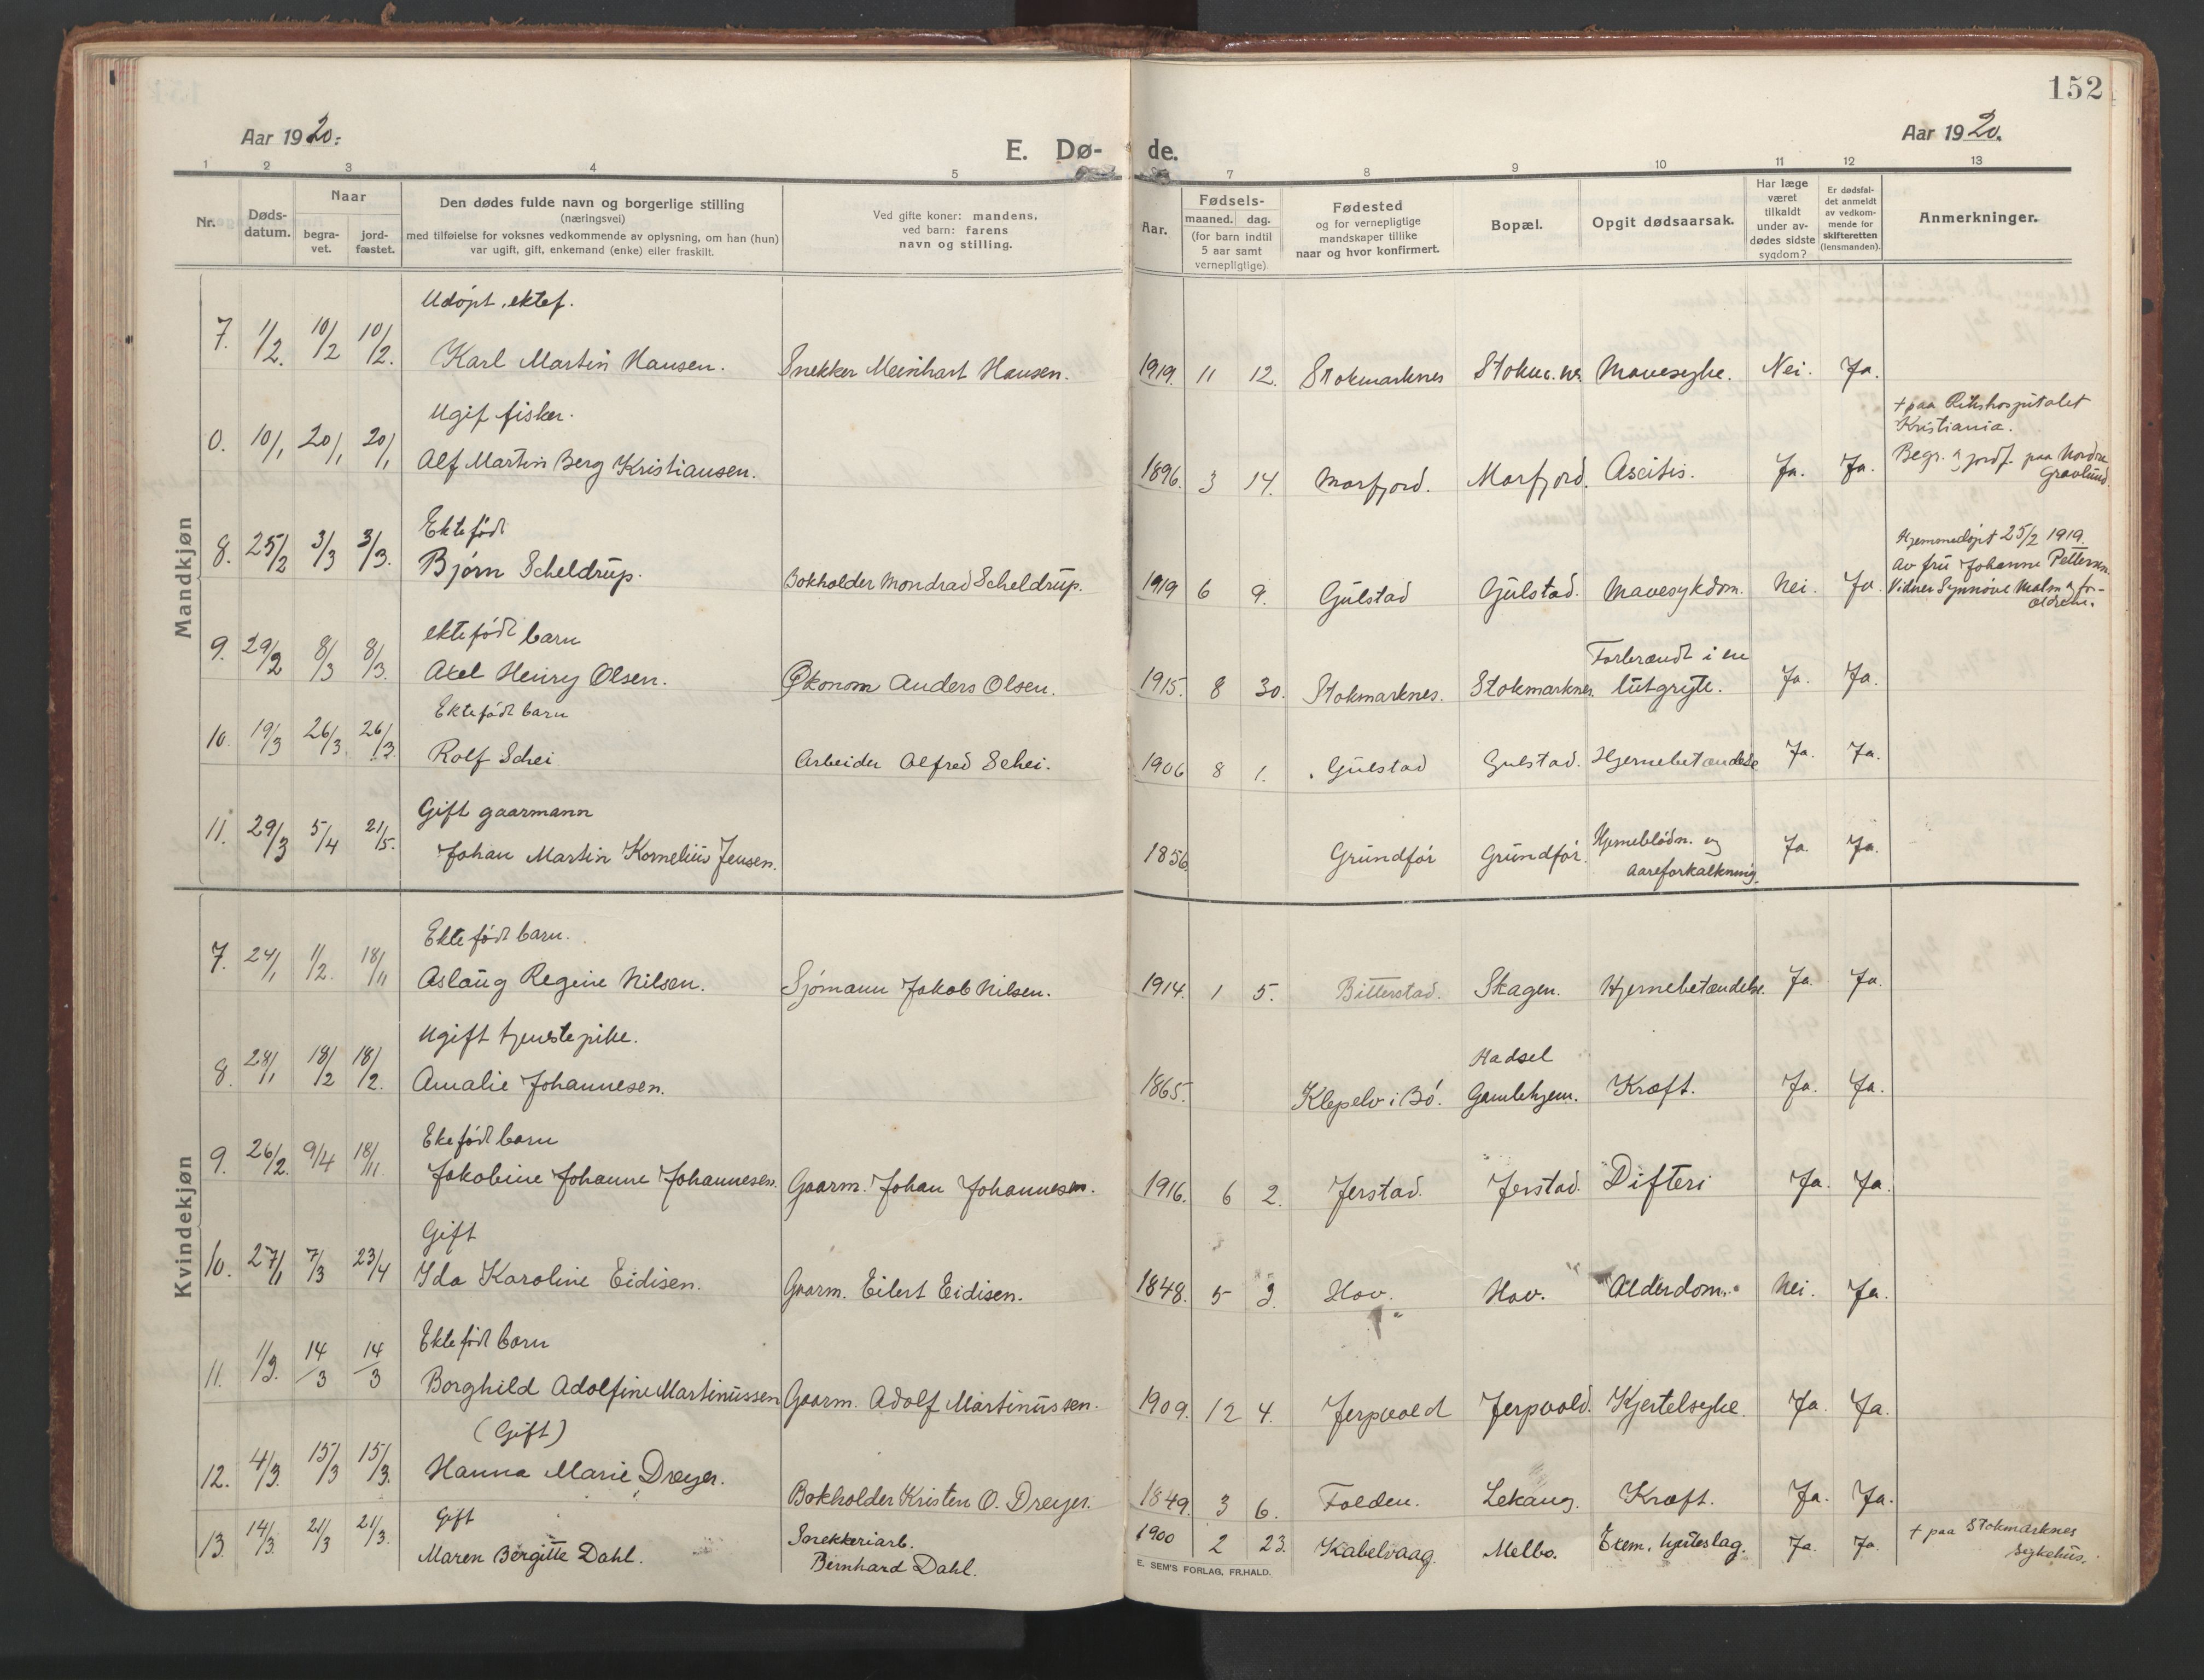 152
Aar 1920.
E. Dø-
de.
Aar 1920.
1 2 3 4 5 7 8 9 10 11 12 13
Nr.
Døds-
datum.
Naar
begra-
vet.
jord-
fæstet.
Den dødes fulde navn og borgerlige stilling
(næringsvei)
med tilføielse for voksnes vedkommende av oplysning, om han (hun)
var ugift, gift, enkemand (enke) eller fraskilt.
Ved gifte koner: mandens,
ved barn: farens
navn og stilling.
Aar.
Fødsels-
maaned. dag.
(for barn indtil
5 aar samt
vernepligtige)
Fødested
og for vernepligtige
mandskaper tillike
naar og hvor konfirmert.
Bopæl.
Opgit dødsaarsak.
Har læge
været
tilkaldt
under av-
dødes sidste
sygdom?
Er dødsfal-
det anmeldt
av vedkom-
mende for
skifteretten
(lensmanden).
Anmerkninger.
Mandkjøn
Udøpt, ektef.
7. 1/2. 10/2 10/2. Karl Martin Hansen. Snekker Meinhart Hansen. 1919. 11 12. Stokmarknes Stokm.nes Mavesyke. Nei. Ja.
Ugif fisker.
0. 10/1 20/1 20/1 Alf Martin Berg Kristiansen. 1896. 3 14. Morfjord. Morfjord. Ascitis. Ja. Ja.
+ paa Rikshospitalet
Kristiania.
Begr. og jordf. paa Nordre
Gravlund.
Ektefødt
8. 25/2 3/3 3/3. Bjørn Scheldrup. Bokholder Mondrad Scheldrup. 1919 6 9. Gulstad Gulstad. Mavesykdom. Nei. Ja.
Hjemmedøpt 25/2 1919.
Av fru Johanne Pettersen.
Vidner Synnøve Malm og for-
ældrene.
ektefødt barn
9. 29/2 8/3 8/3. Axel Henry Olsen. Økonom Anders Olsen. 1915. 8 30. Stokmarknes. Stokmarknes. Forbrændt i en
lutgryte. Ja. Ja.
Ektefødt barn
10. 19/3 26/3. 26/3. Rolf Schei Arbeider Alfred Schei. 1906 8 1. Gulstad Gulstad. Hjernebetændelse Ja. Ja.
Gift gaarmann
11. 29/3 5/4 21/5. Johan Martin Kornelius Jensen. 1856 Grundfør Grundfør. Hjerneblødn. og
Aareforkalkning. Ja. Ja.
Kvindekjøn
Ektefødt barn.
7. 24/1 1/2. 18/11 Aslaug Regine Nilsen. Sjømann Jakob Nilsen. 1914. 1 5. Bitterstad. Skagen. Hjernebetændelse. Ja. Ja.
Ugift tjenstepike.
8. 28/1 18/2 18/2. Amalie Johannesen. 1865. Klepelv i Bø. Hadsel
Gamlehjem. Kræft. Ja. Ja.
Ekefødt barn
9. 26/2. 9/4 18/11. Jakobine Johanne Johannesen. Gaarm. Johan Johannesen. 1916. 6 2. Jerstad. Jerstad. Difteri Ja. Ja.
Gift
10. 27/1 7/3 23/4 Ida Karoline Eidisen. Gaarm. Eilert Eidisen. 1848. 5 3. Hov. Hov. Alderdom. Nei. Ja.
Ektefødt barn
11. 1/3. 14/3 14/3 Borghild Adolfine Martinussen Gaarm. Adolf Martinussen. 1909. 12 4. Jerpvold Jerpvold. Kjertelsyke. Ja. Ja.
(Gift)
12. 4/3. 15/3 15/3. Hanna Marie Dreyer. Bokholder Kristen O. Dreyer. 1849. 3 6. Folden. Lekang. Kræft. Ja. Ja.
Gift
13. 14/3. 21/3 21/3. Maren Bergitte Dahl. Snekkeriarb.
Bernhard Dahl. 1900 2 23. Kabelvaag. Melbo. hjerteslag. Ja. Ja.
+ paa Stokmarknes
sykehus.
E. SEM'S FORLAG, FR.HALD.